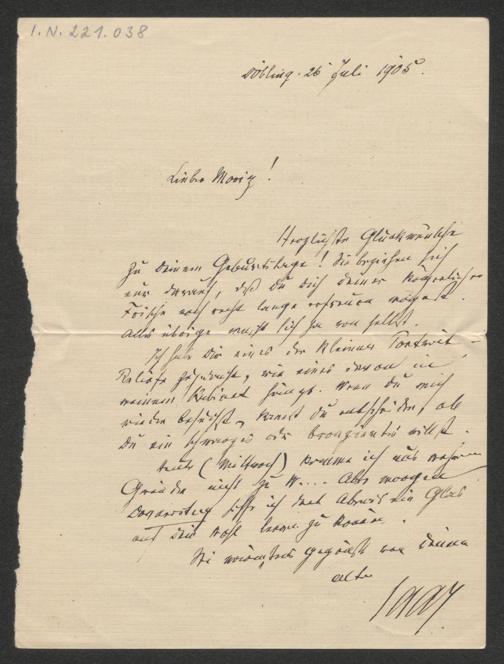 I.N. 221.038
Döbling. 26 Juli 1905.
Lieber Moriz!
Herzlichste Glückwünsche
zu Deinem Geburtstage! Sie beziehen sich
nur darauf, daß Du Dich Deiner körperlichen
Frische noch recht lange erfreuen mögest.
Alles übrige macht sich ja von selbst.
Ich habe Dir eines der kleinen Portrait-
Reliefs, wie eines davon in
meinem Kabinet hängt. Wenn Du mich
wieder besuchst, kannst Du entscheiden, ob
Du ein schwarzes oder bronziertes willst.
Heute (Mittwoch) komme ich aus
Gründen nicht zu W.... Aber morgen
Donnerstag hoffe ich dort Abends ein Glas
auf Dein Wohl leeren zu können.
Sei gegrüßt von Deinem
alten
Saar